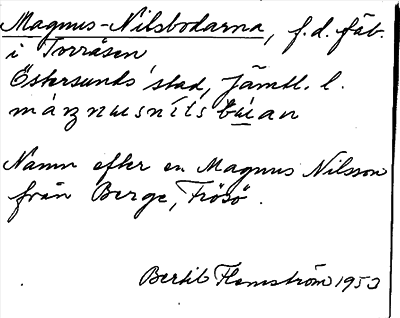 Magnus-Nilsbodarna, f.d. fäb.
i Torråsen
Östersunds stad, Jämtl. l.
Namn efter en Magnus Nilsson
från Berge, Frösö.
Bertil Flemström 1953